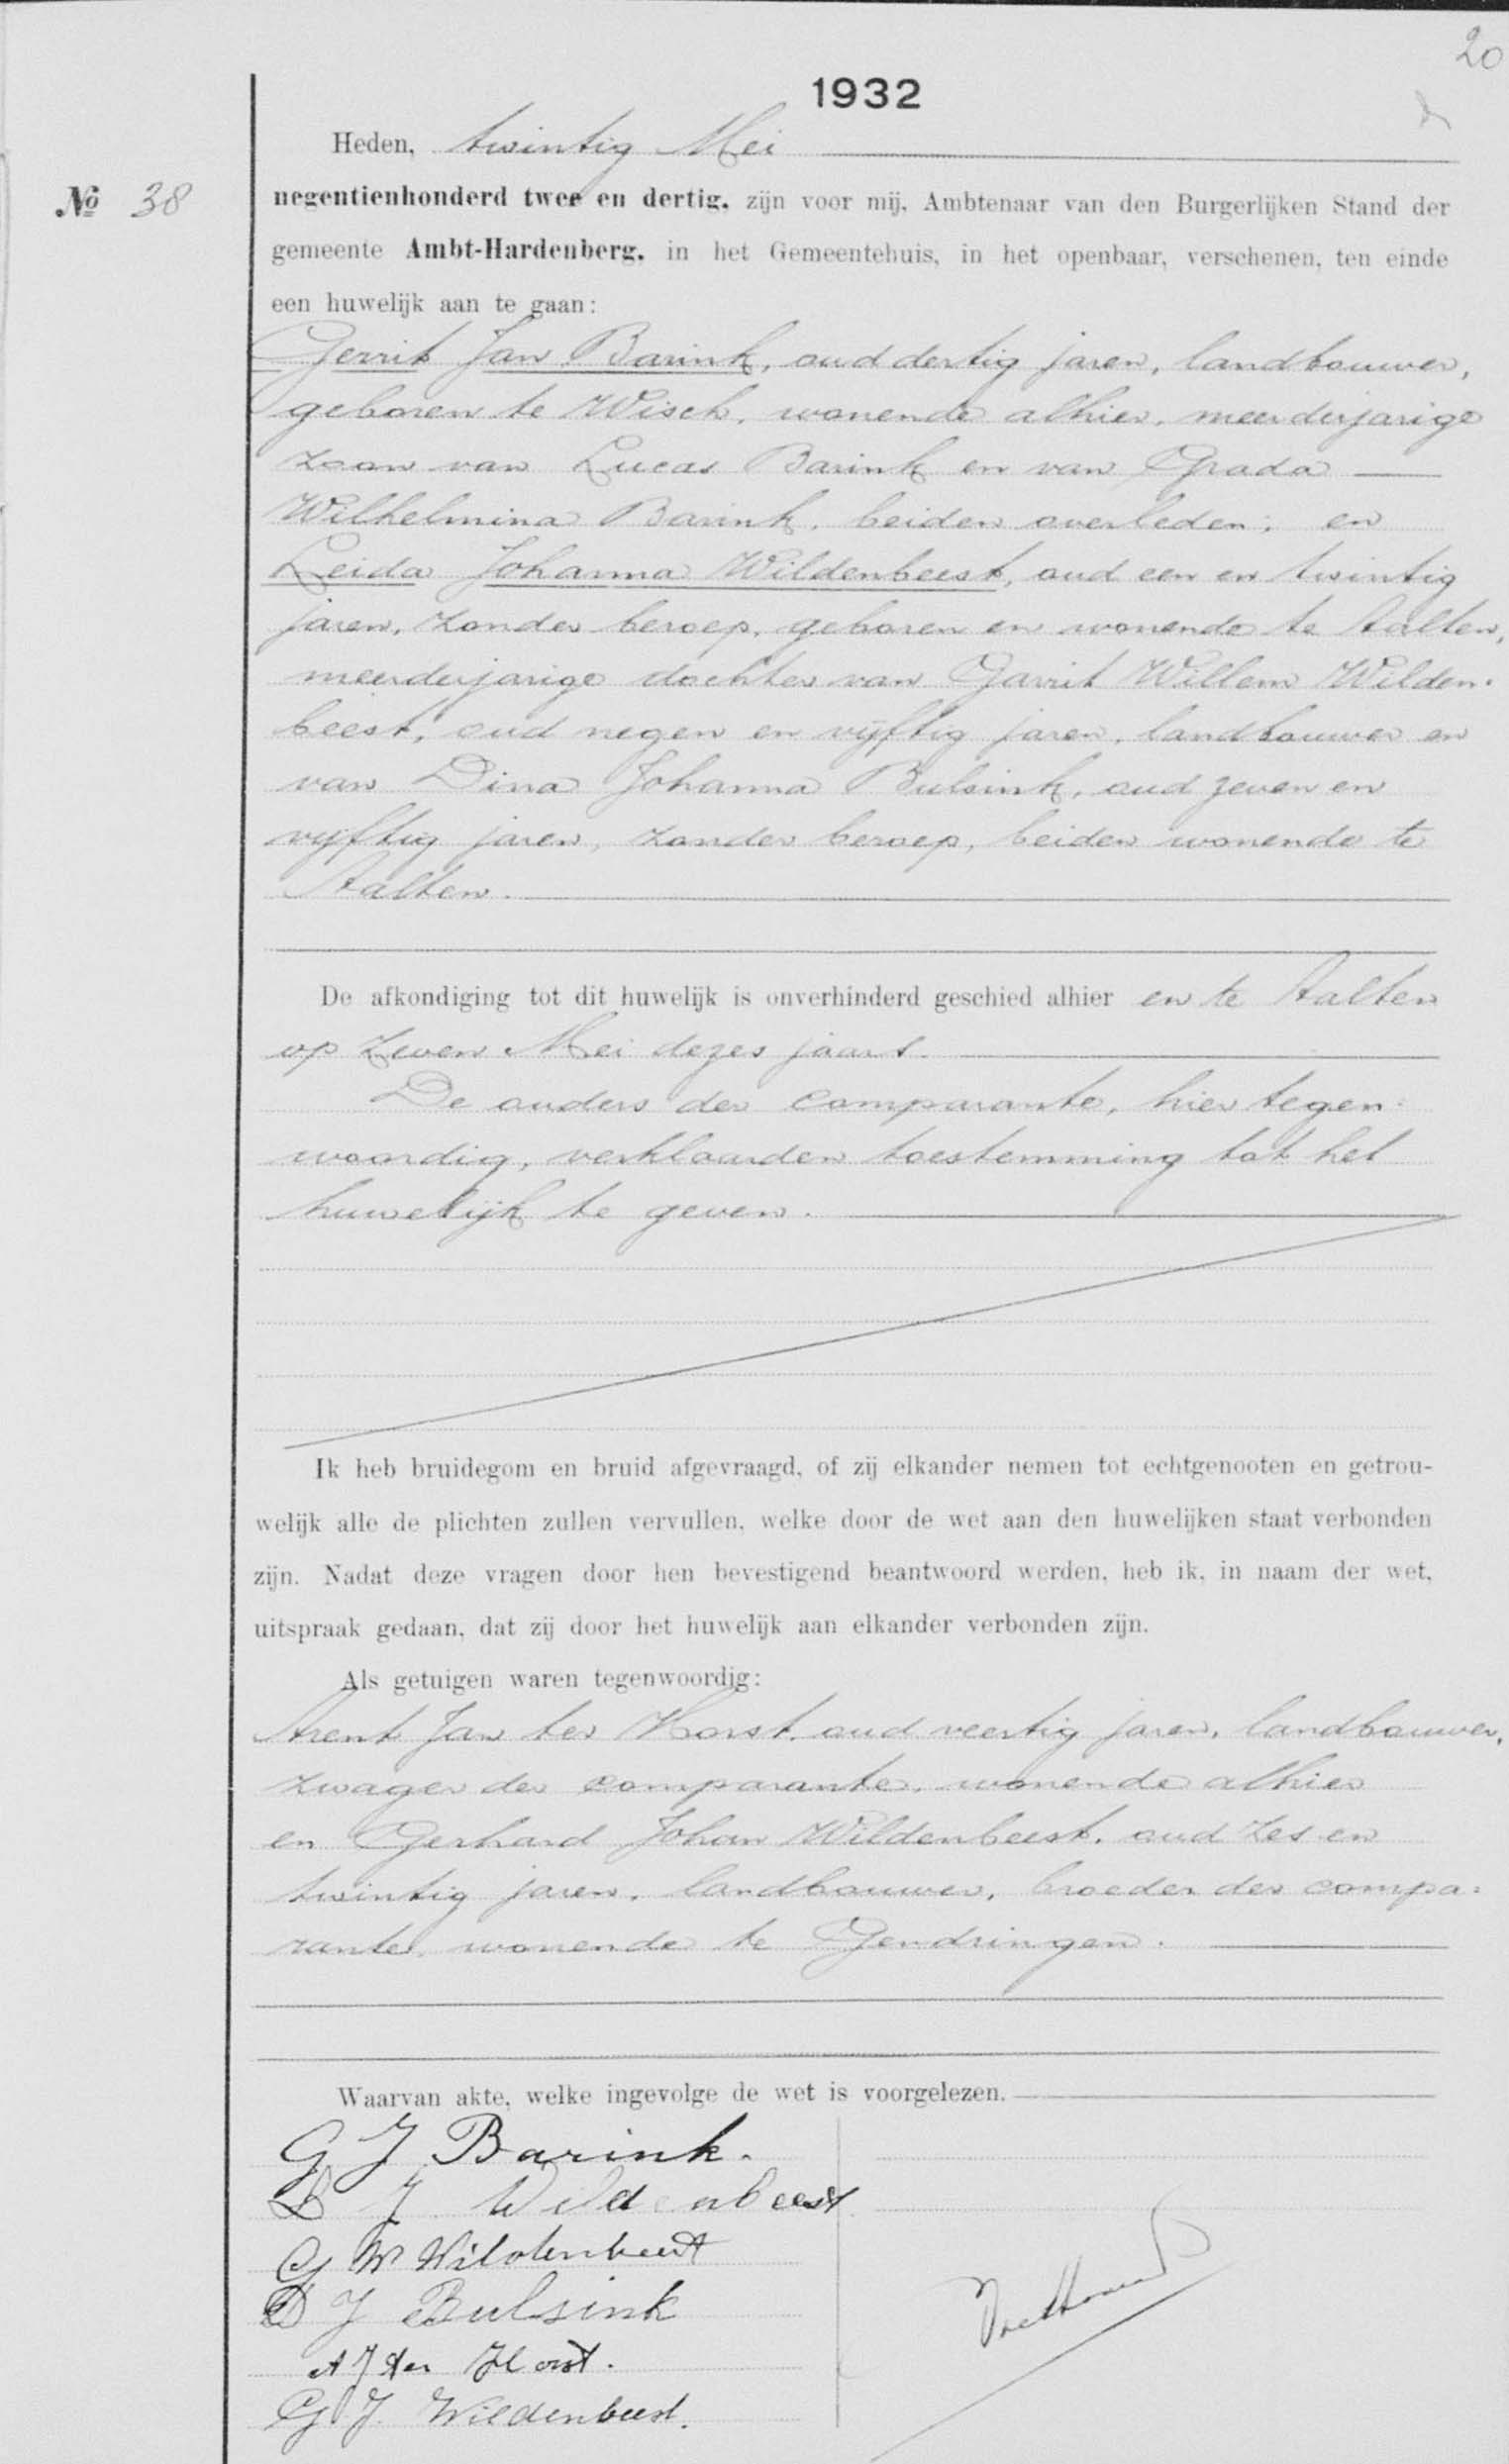 20
1932
Heden, twintig Mei
№ 38
negentienhonderd twee en dertig, zijn voor mij, Ambtenaar van den Burgerlijken Stand der
gemeente Ambt-Hardenberg, in het Gemeentehuis, in het openbaar, verschenen, ten einde
een huwelijk aan te gaan:
Gerrit Jan Barink, oud dertig jaren, landbouwer,
geboren te Wisch, wonende alhier, meerderjarige
zoon van Lucas Barink en van Grada
Wilhelmina Barink, beiden overleden; en
Leida Johanna Wildenbeest, oud een en twintig
jaren, zonder beroep, geboren en wonende te Aalten,
meerderjarige dochter van Garrit Willem Wilden-
beest, oud negen en vijftig jaren, landbouwer en
van Dina Johanna Bulsink, oud zeven en
vijftig jaren, zonder beroep, beiden wonende te
Aalten.
De afkondiging tot dit huwelijk is onverhinderd geschied alhier en te Aalten
op zeven Mei dezes jaars.
De ouders der comparante, hier tegen-
woordig, verklaarden toestemming tot het
huwelijk te geven.
Ik heb bruidegom en bruid afgevraagd, of zij elkander nemen tot echtgenooten en getrou-
welijk alle de plichten zullen vervullen, welke door de wet aan den huwelijken staat verbonden
zijn. Nadat deze vragen door hen bevestigend beantwoord werden, heb ik, in naam der wet,
uitspraak gedaan, dat zij door het huwelijk aan elkander verbonden zijn.
Als getuigen waren tegenwoordig:
Arent Jan ter Horst, oud veertig jaren, landbouwer,
zwager der comparante, wonende alhier
en Gerhard Johan Wildenbeest, oud zes en
twintig jaren, landbouwer, broeder der compa-
rante, wonende te Gendringen.
Waarvan akte, welke ingevolge de wet is voorgelezen.
G J Barink.
L J Wildenbeest
G W Wildenbeest
D J Bulsink
A J ter Horst.
G J Wildenbeest.